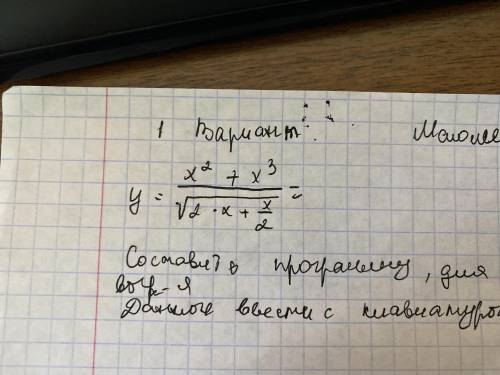 1 Вариант.
y = \frac{x^2 + x^3}{\sqrt{2 \cdot x + \frac{x}{2}}} =
Составить программу, для
выр-я
Данные ввести с клавиатуро